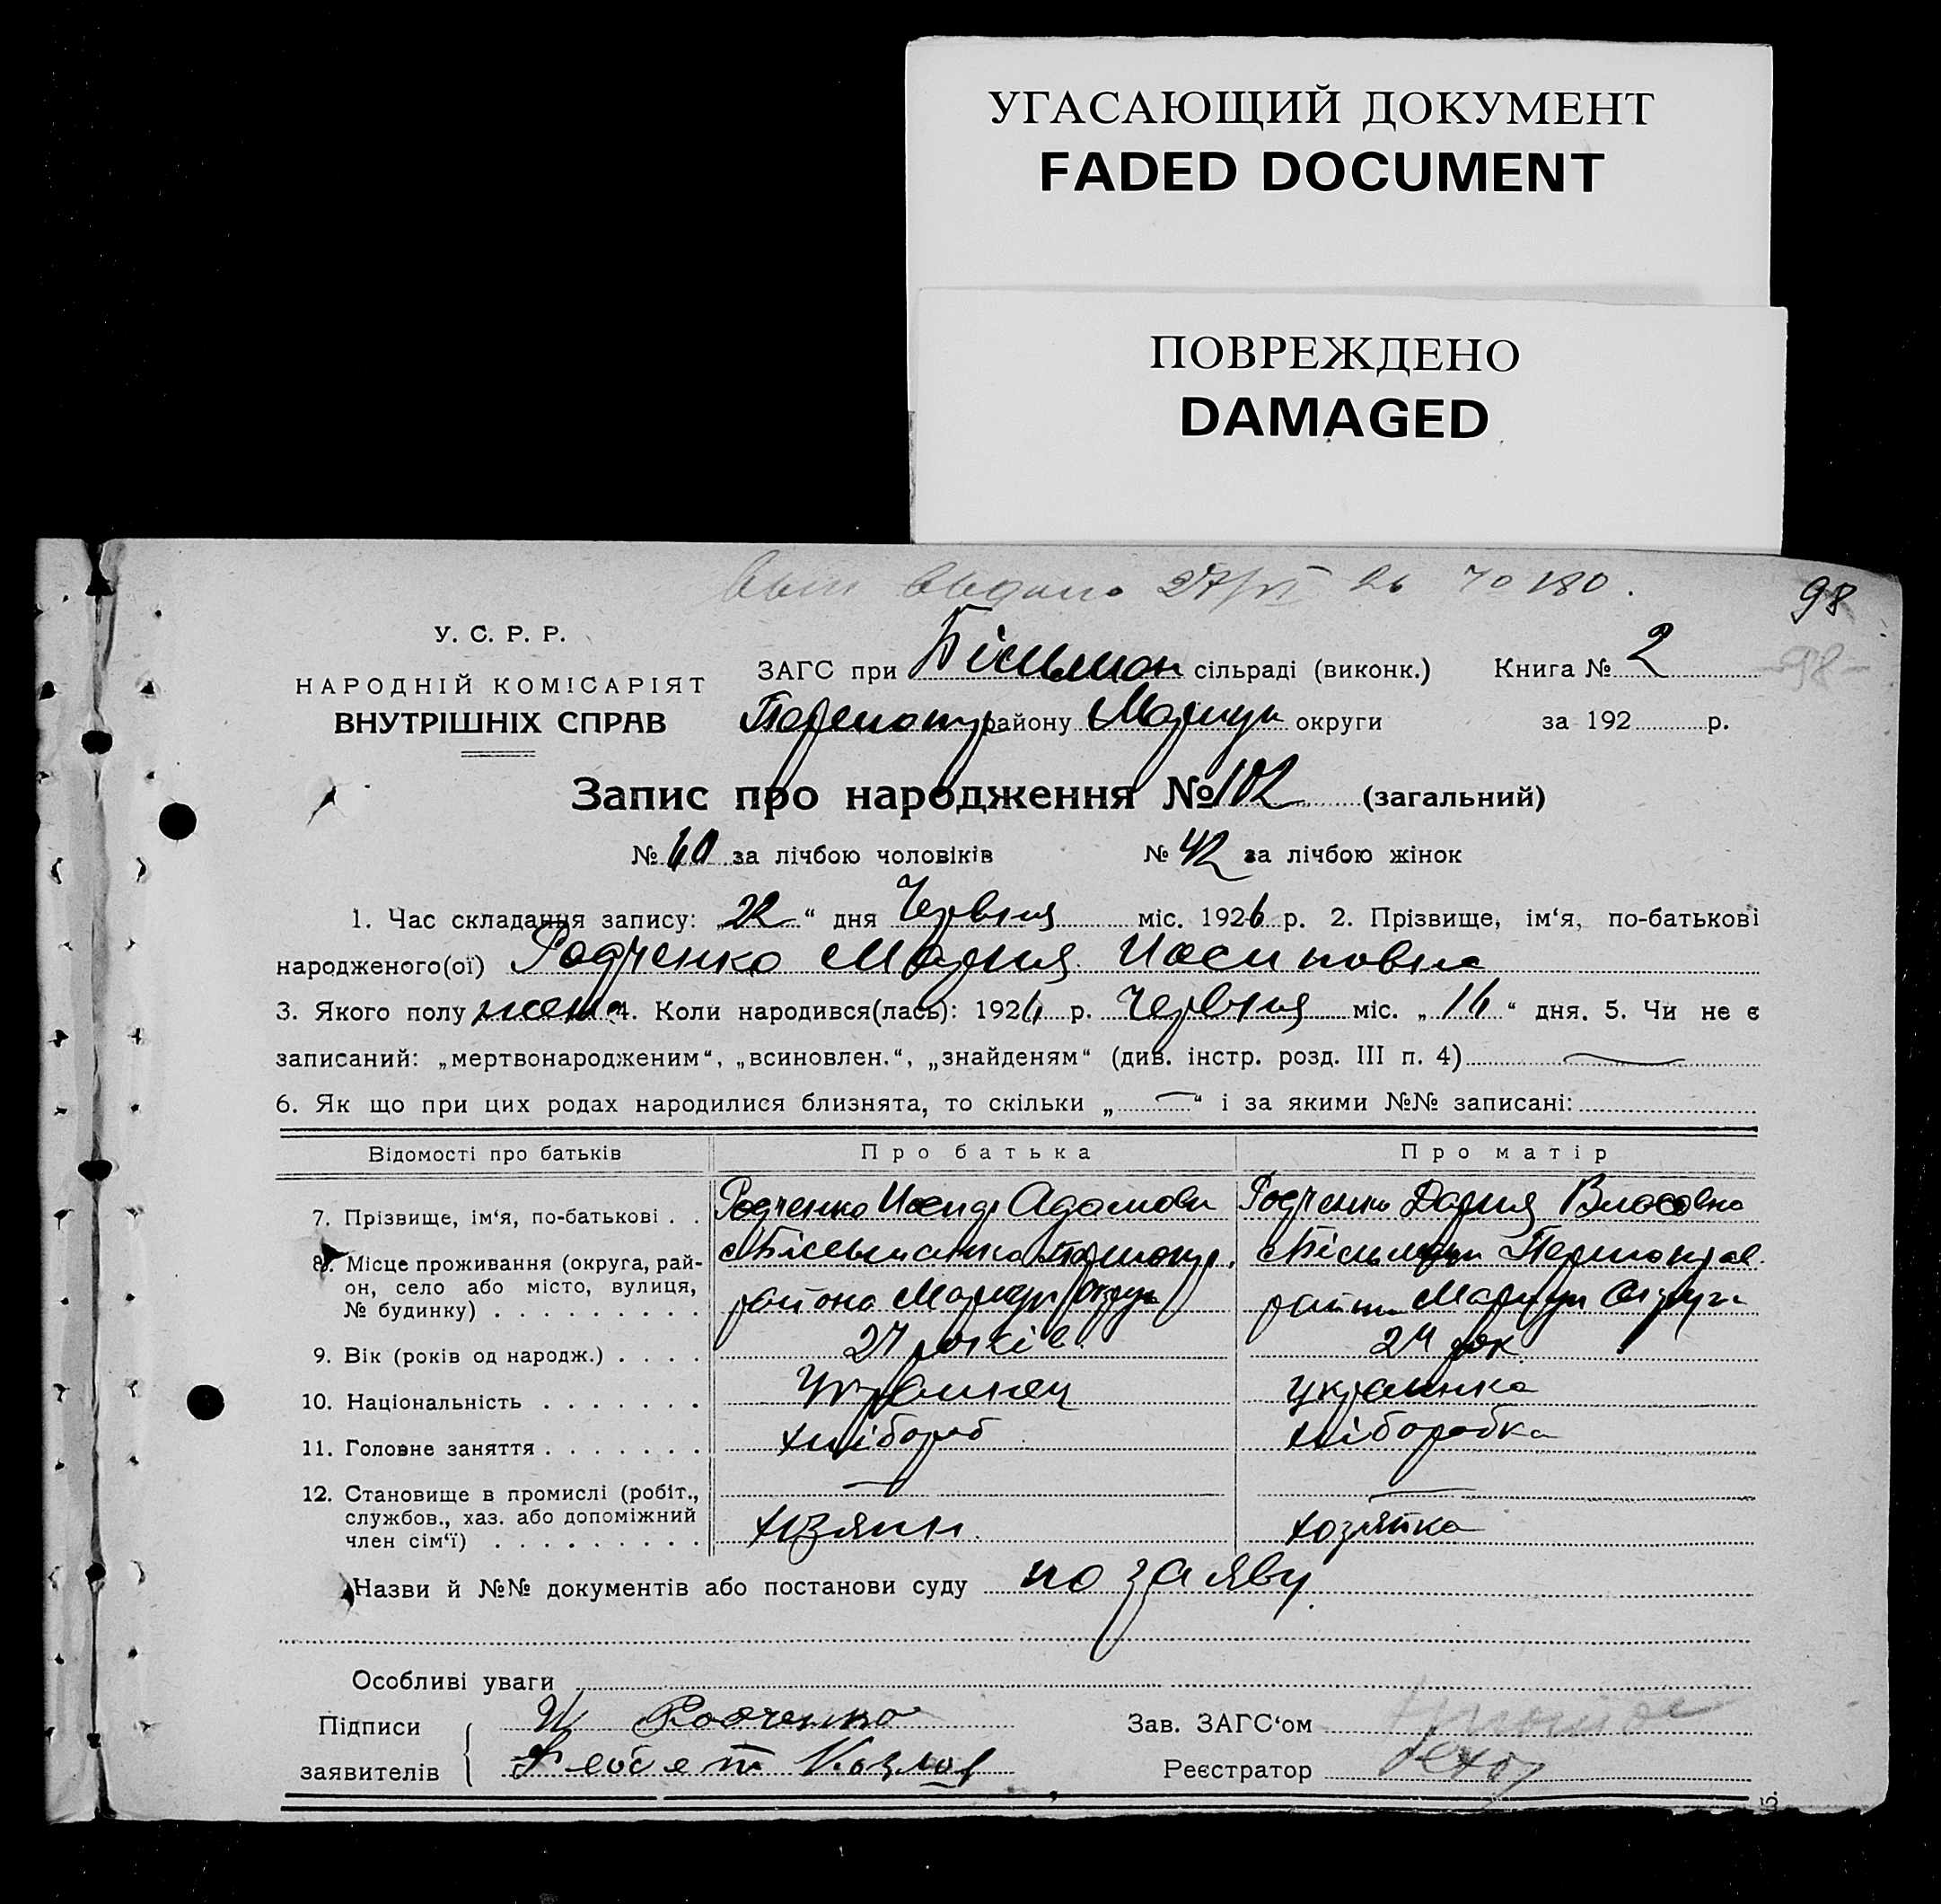 УГАСАЮЩИЙ ДОКУМЕНТ
FADED DOCUMENT
ПОВРЕЖДЕНО
DAMAGED
98
У. С. Р. Р.
НАРОДНІЙ КОМІСАРІЯТ
ВНУТРІШНІХ СПРАВ
ЗАГС при Більман сільраді (виконк.) Книга № 2
-98-
району Маріуп округи за 192 р.
Запис про народження № 102 (загальний)
№ 60 за лічбою чоловіків № 42 за лічбою жінок
1. Час складання запису: „22“ дня Червня міс. 1926 р. 2. Прізвище, ім‘я, по-батькові
народженого(ої) Родченко Мария Иосиповна
3. Якого полу жено 4. Коли народився(лась): 1926 р. Червня міс. „16“ дня. 5. Чи не є
записаний: „мертвонародженим“, „всиновлен.“, „знайденям“ (див. інстр. розд. III п. 4)
6. Як що при цих родах народилися близнята, то скільки „ “ і за якими №№ записані:
Відомості про батьків Про батька Про матір
7. Прізвище, ім‘я, по-батькові . . Родченко Иосип Адамови Родченко Дария Власовна
8. Місце проживання (округа, рай-
он, село або місто, вулиця,
№ будинку) . . . . . . . . . району Маріуп Округи район Маріуп Округи
9. Вік (років од народж.) . . . . 27 років 24 рок.
10. Національність . . . . . . . Украинец украинка
11. Головне заняття . . . . . . . хлібороб хліборобка
12. Становище в промислі (робіт.,
службов., хаз. або допоміжний
член сім‘ї) . . . . . . . . . хозяин хозяйка
Назви й №№ документів або постанови суду по заяву
Особливі уваги
Підписи И Родченко Зав. ЗАГС‘ом
заявителів Козлов Реєстратор